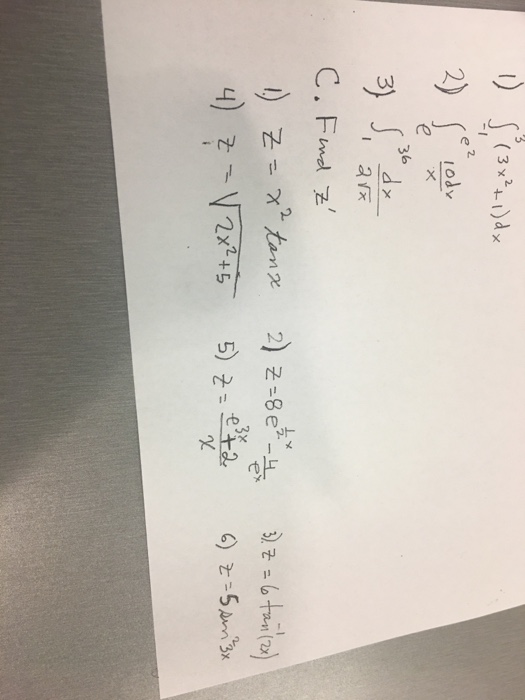 1) ∫₋₁³ (3x² + 1) dx
2) ∫ₑ^(e²) 10dx/x
3) ∫₁³⁶ dx/(2√x)
C. Find z'
1.) z = x² tan x 2) z = 8e^(½x) - 4/eˣ 3). z = 6 tan⁻¹(2x)
4) z = √(2x² + 5) 5) z = (e³ˣ + 2)/x 6) z = 5 sin² 3x